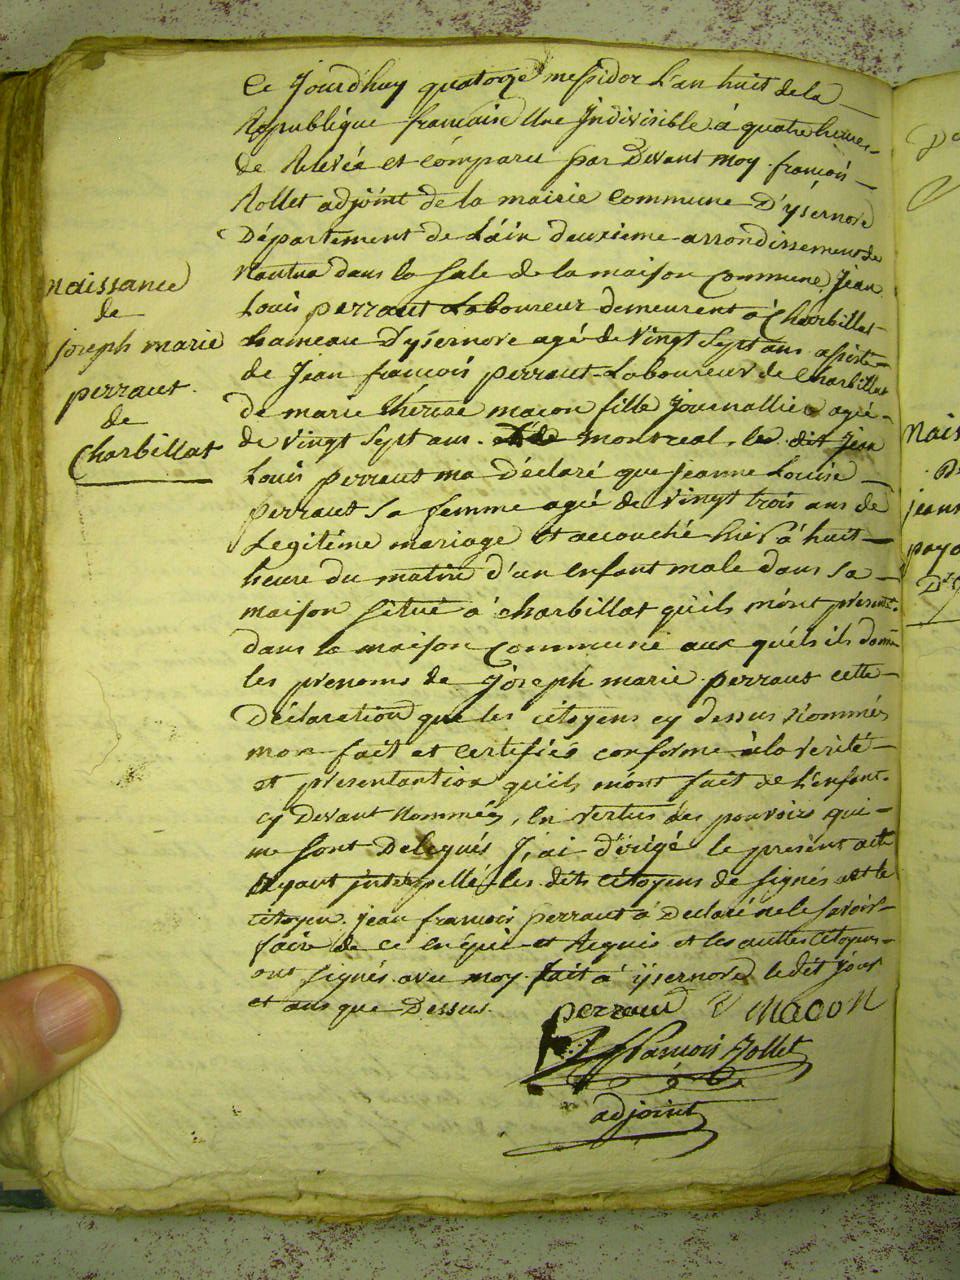 Ce Jourd'huy quatorze messidor L'an huit de la
Republique francaise Une Indivisible à quatre heures
de Relevée et Comparu par Devant moy francois
Rollet adjoint de la mairie Commune D'ysernore
Département de L'ain deuxieme arrondissement de
Nantua dans la sale de la maison Commune, Jean
Louis perraut Laboureur demeurent à Charbillat
hameau D'ysernore agé de vingt sept ans assisté
de Jean francois perraut Laboureur de Charbillat
de marie thérèse macon fille Journallier agée
de vingt sept ans de montreal, le dit Jean
Louis perraut ma Déclaré que jeanne Louise
perraut sa femme agée de vingt trois ans de
Legitime mariage et accouché hier à huit
heure du matin d'un enfant male dans sa
maison situé a charbillat qu'ils m'ont present
dans la maison Commune aux quels ils donné
les prenoms de joseph marie perraut cette
Déclaration que les citoyens cy dessus Nommés
mon fait et certifiés conforme à la verité
et presentantion qu'ils m'ont fait de L'enfant
cy Devant Nommés, En vertus des pouvoirs qui
me sont Delegués J'ai dirigé le present acte
Ayant interpellé les dits citoyens de signés et le
citoyen jean francois perraut a Declaré ne le savoir
faire de ce enquis et Requis et les autres Citoyens
ont signés avec moy. fait à ysernore ledit Jour
et ans que Dessus.
perraut macon
francois Rollet
adjoint
naissance
de
joseph marie
perraut
de
Charbillat
Nais
jeann